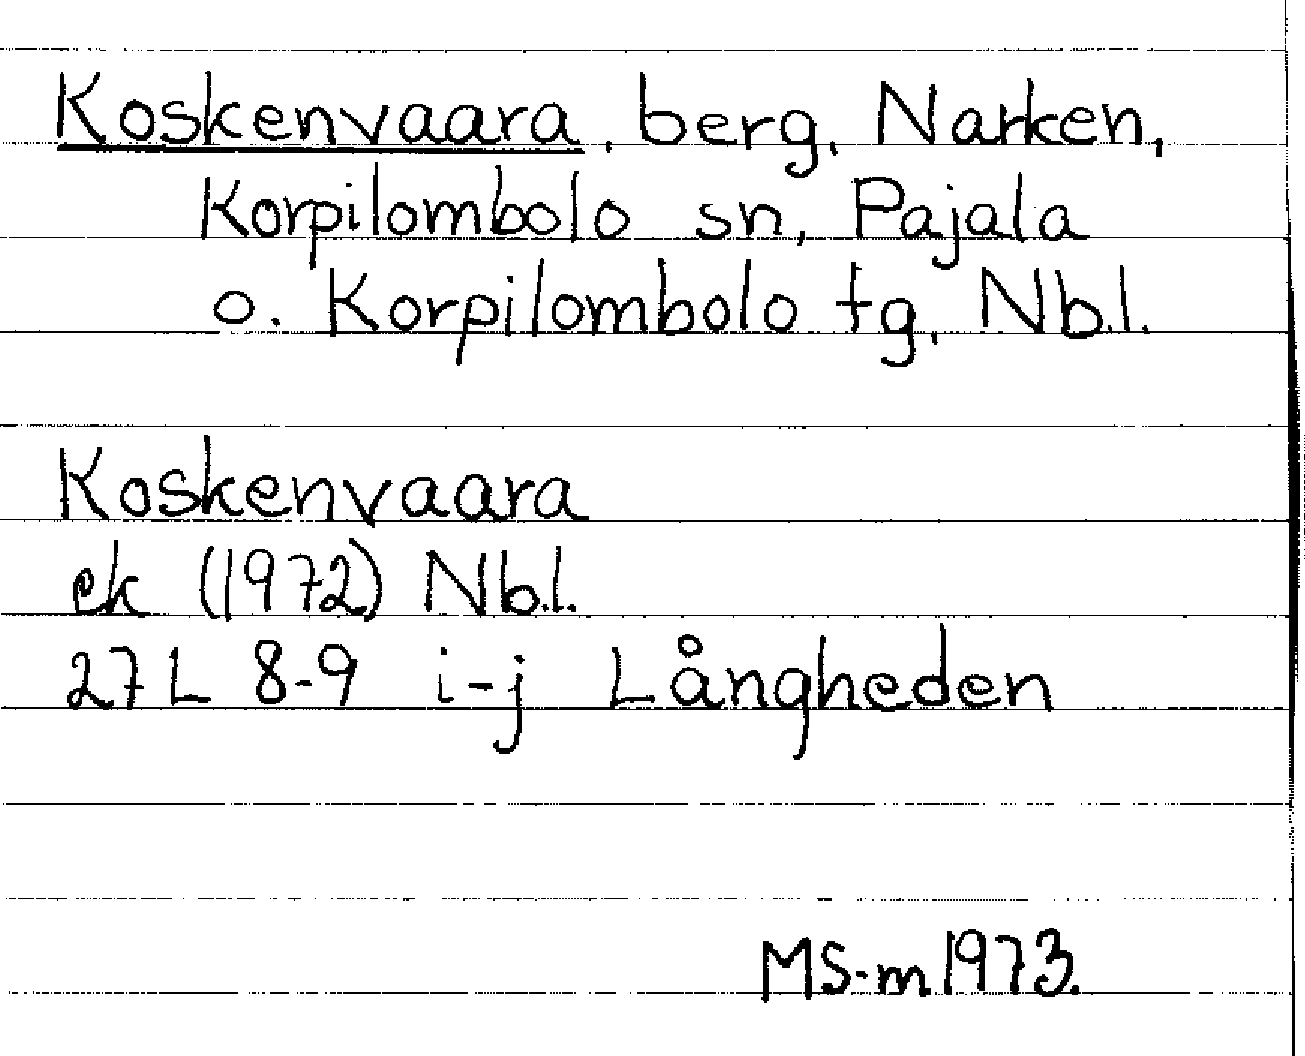 Koskenvaara, berg, Narken,
Korpilombolo sn, Pajala
o. Korpilombolo tg, Nb.l.
Koskenvaara
ek (1972) Nb.l.
27 L 8-9 i-j Långheden
MS-m 1973.